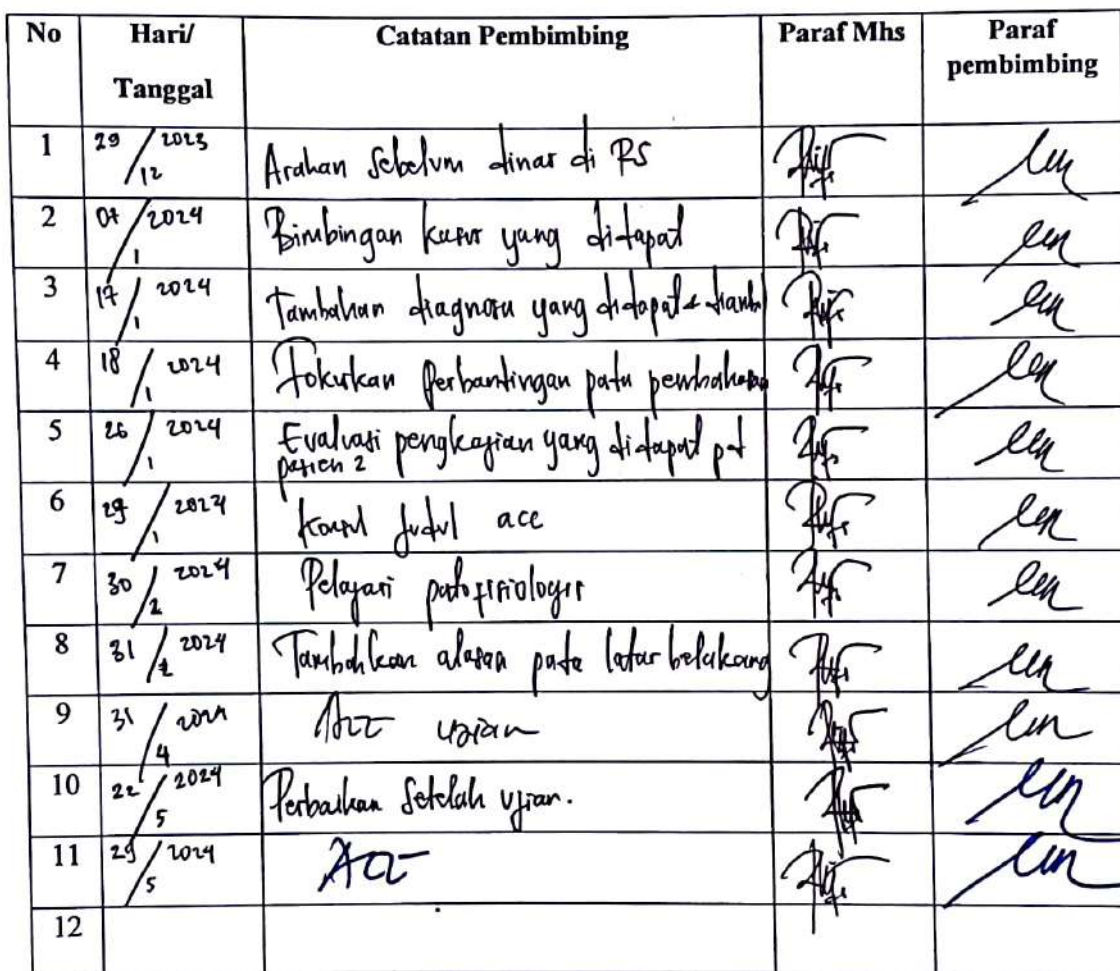 No Hari/ Tanggal Catatan Pembimbing Paraf Mhs Paraf pembimbing
1 29/12 2023 Arahan sebelum dinas di RS
2 07/1 2024 Bimbingan kasus yang didapat
3 17/1 2024 Tambahan diagnosa yang didapat & diambl
4 18/1 2024 Fokuskan perbandingan pada pembahasan
5 26/1 2024 Evaluasi pengkajian yang didapat pd
pasien 2
6 29/1 2024 Konsul judul acc
7 30/2 2024 Pelajari patofisiologis
8 31/2 2024 Tambahkan alasan pada latar belakang
9 31/4 2024 Acc ujian
10 22/5 2024 Perbaikan setelah ujian.
11 29/5 2024 Acc
12